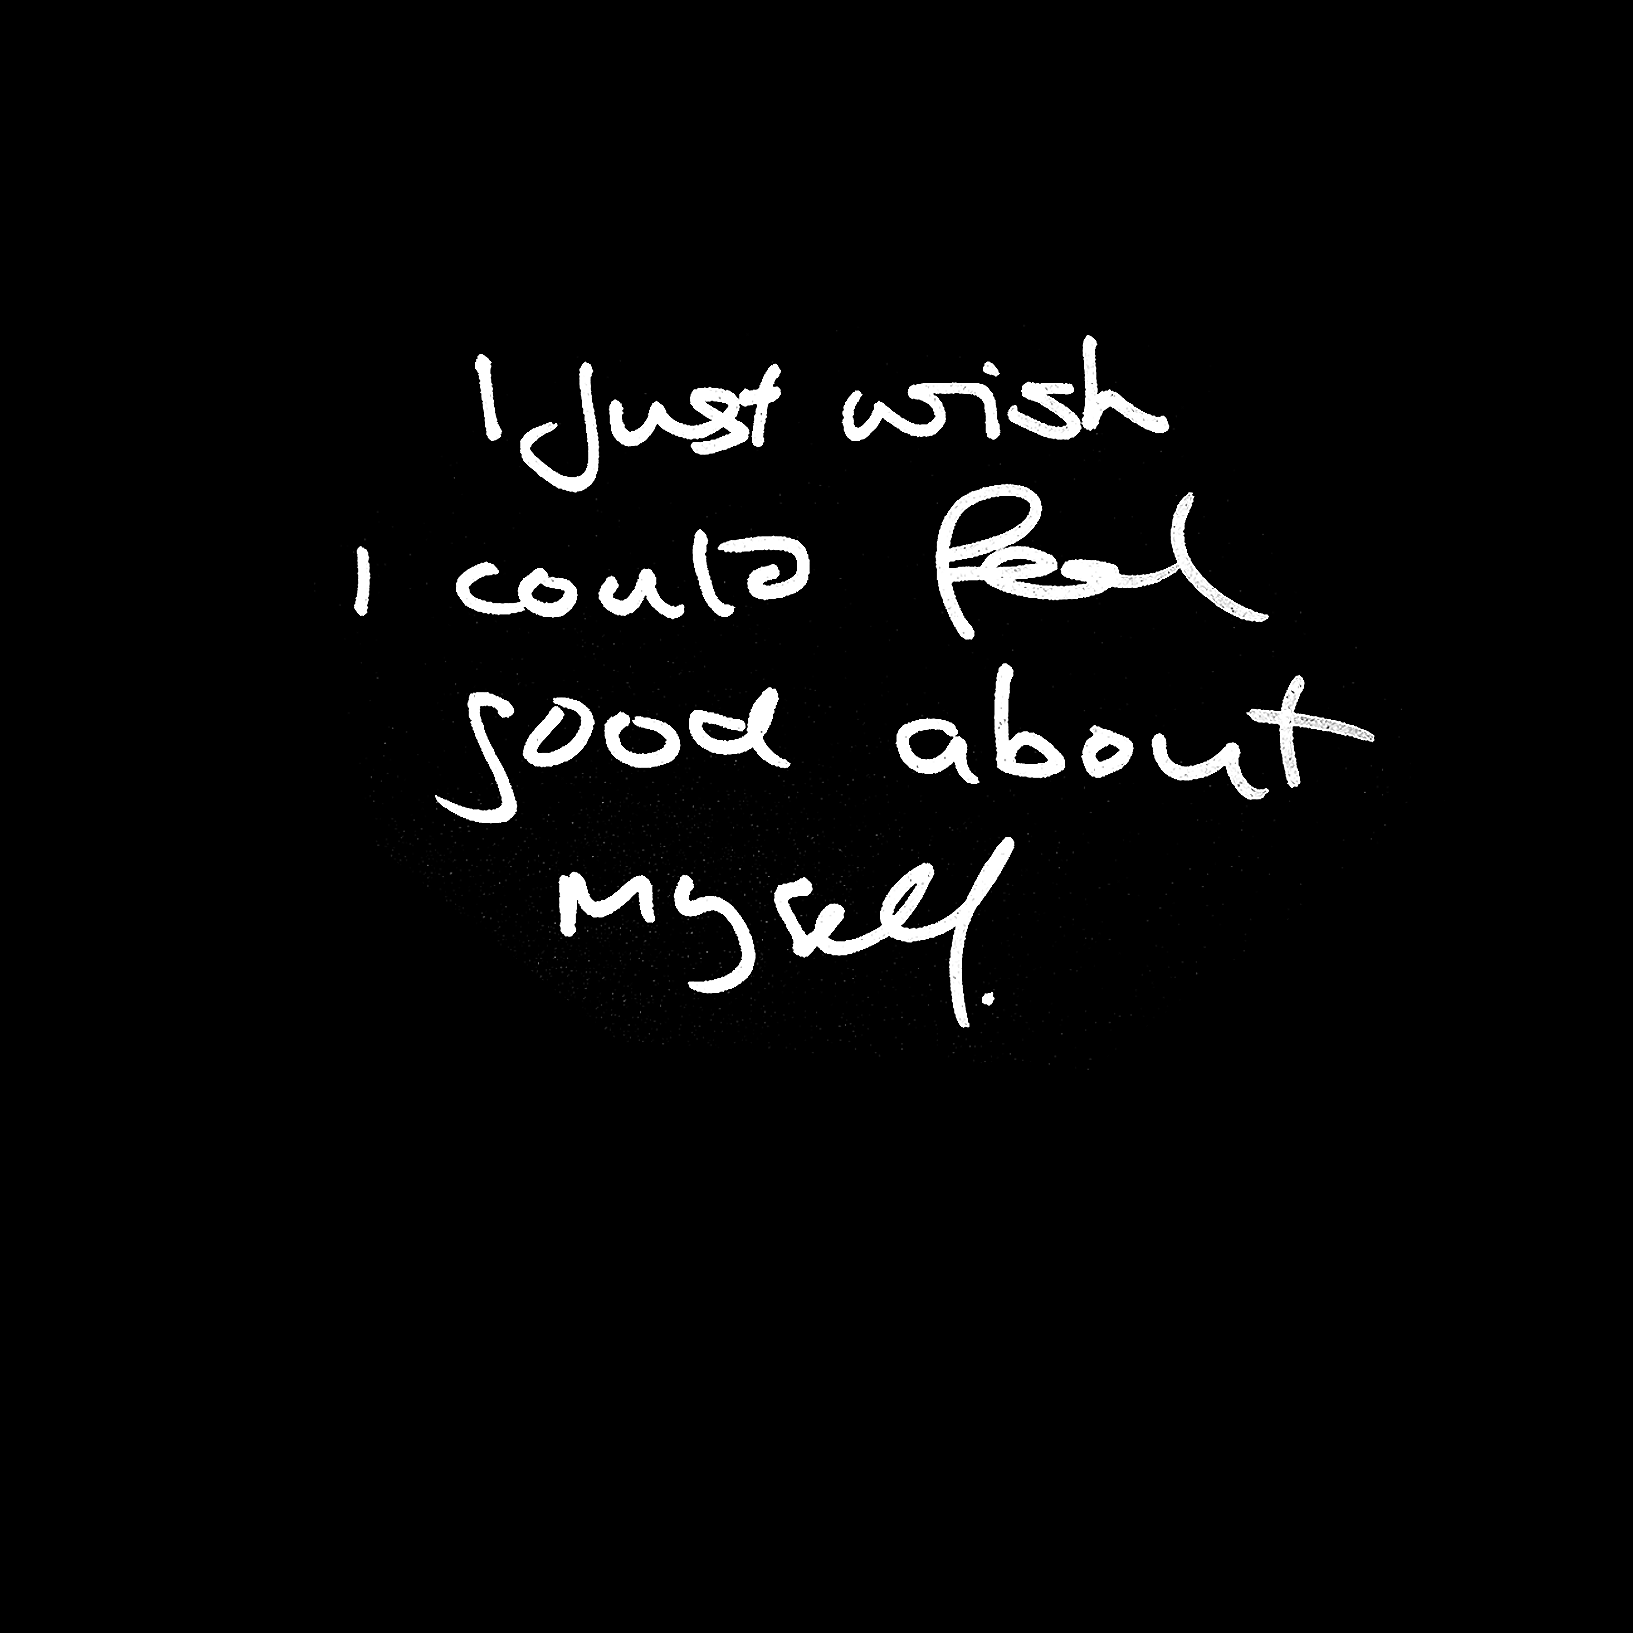 I just wish
I could feel
good about
myself.